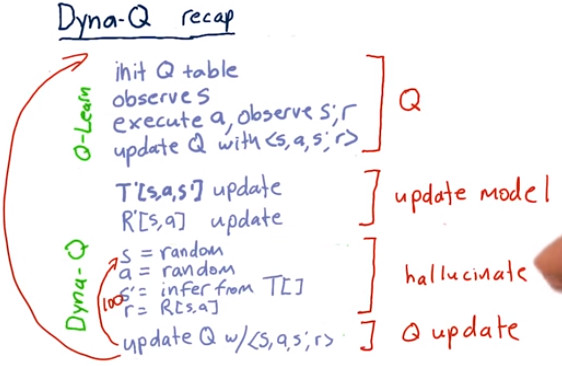 Dyna-Q recap
Q-Learn
init Q table
observe s
execute a, observe s', r
update Q with <s, a, s', r>
Q
T'[s,a,s'] update
R'[s,a] update
update model
Dyna-Q
s = random
a = random
s' = infer from T[]
r = R[s,a]
100
hallucinate
update Q w/ <s,a,s', r>
Q update